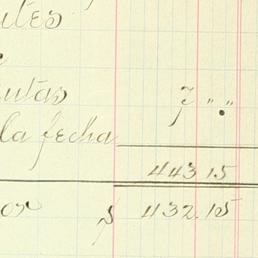 utas 7 " . "
la fecha
443.15
or $ 432.15